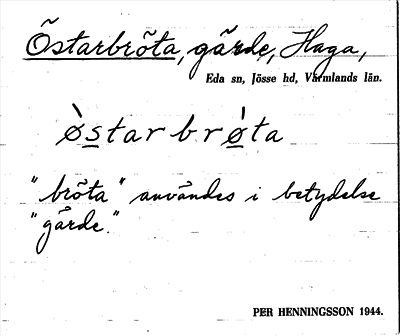 Östarbröta, gärde, Haga,
Eda sn, Jösse hd, Värmlands län.
ø̀s̲tarbrø̲̀ta
"bröta" användes i betydelse
"gärde."
PER HENNINGSSON 1944.